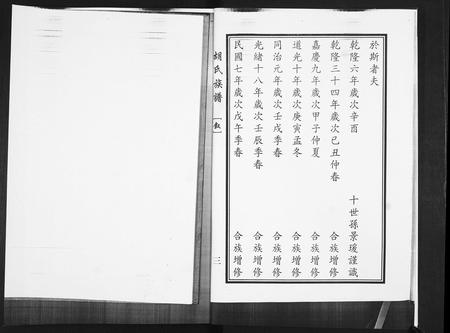 於斯者夫
乾隆六年歲次辛酉 十世孫景瑗謹識
乾隆三十四年歲次己丑仲春 合族增修
嘉慶九年歲次甲子仲夏 合族增修
道光十年歲次庚寅孟冬 合族增修
同治元年歲次壬戌季春 合族增修
光緒十八年歲次壬辰季春 合族增修
民國七年歲次戊午季春 合族增修
胡氏族譜 [敘] 三